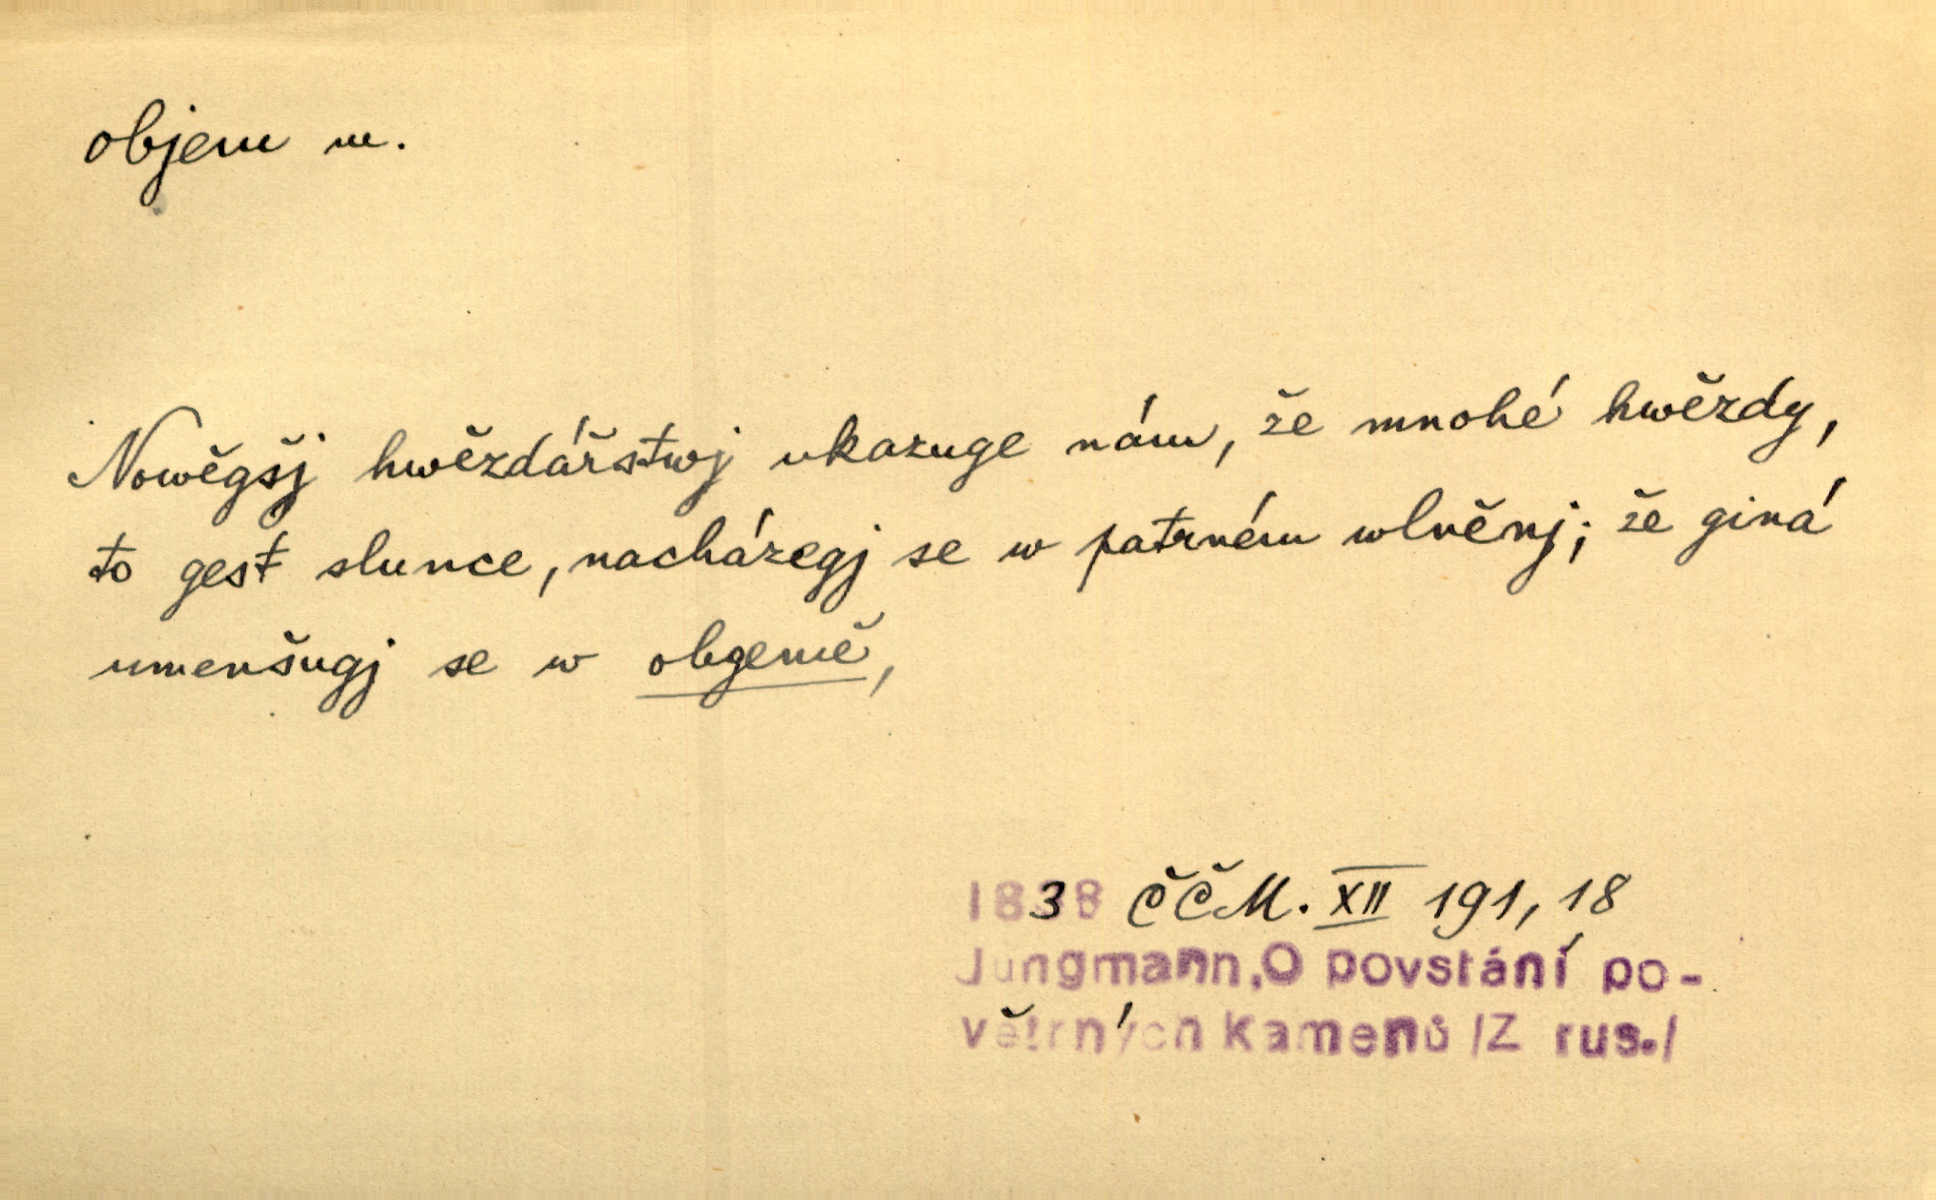 objem m.
Nowěgšj hwězdářstwj ukazuge nám, že mnohé hwězdy,
to gest slunce, nacházegj se w patrném wlněnj; že giná
umenšugj se w obgemě,
1838 ČČM. XII 191, 18
Jungmann, O povstání po-
větrných kamenů /Z rus./